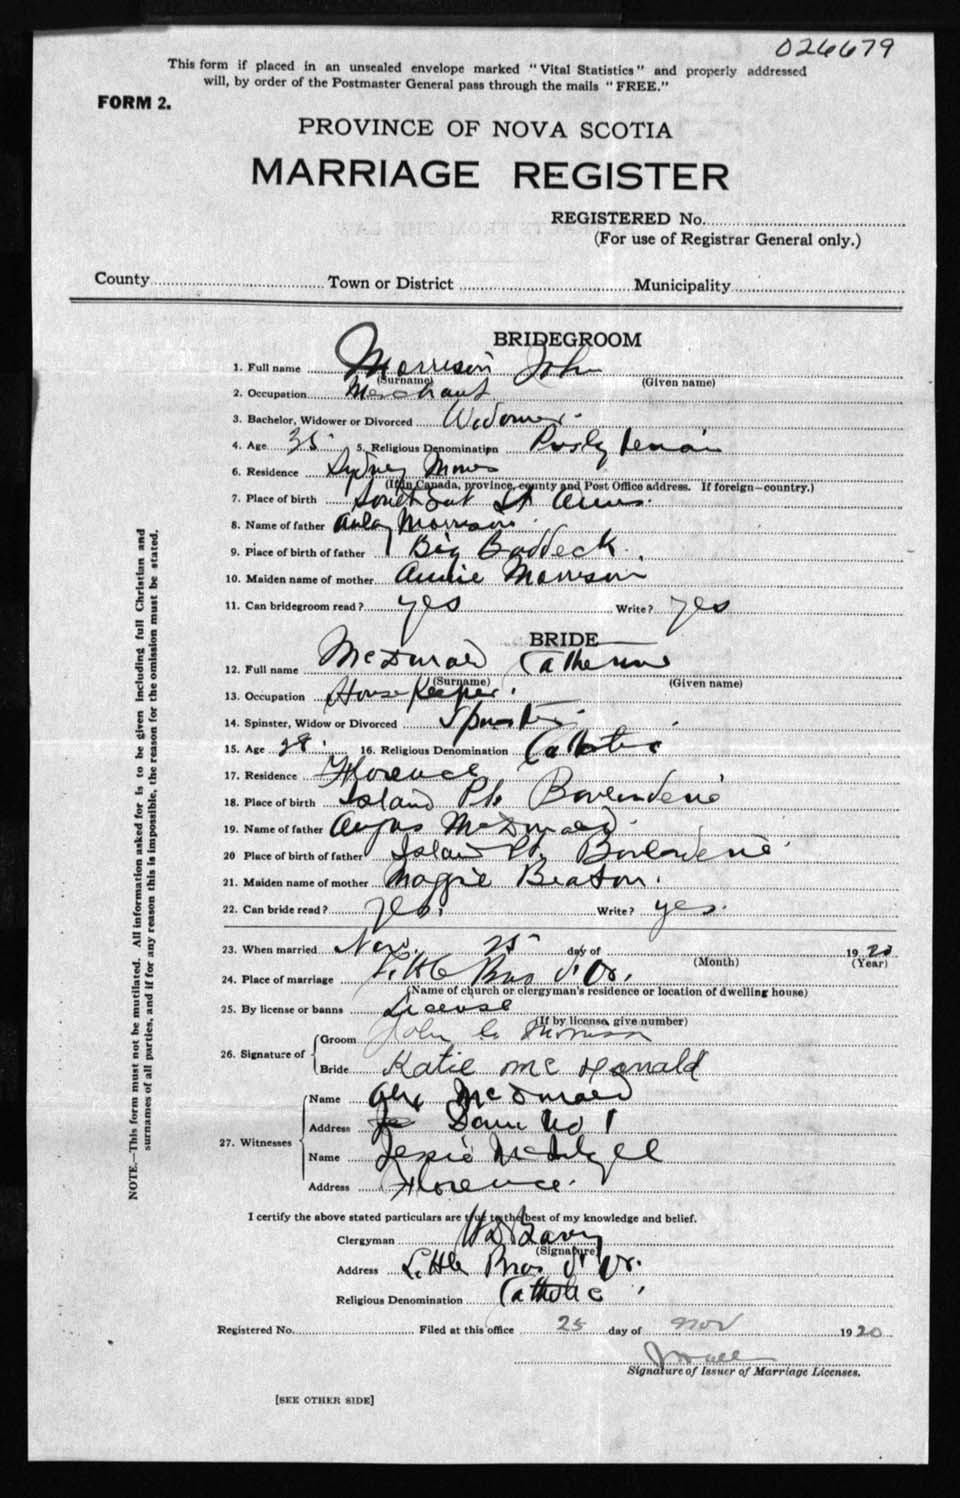 026679
This form if placed in an unsealed envelope marked "Vital Statistics" and properly addressed
will, by order of the Postmaster General pass through the mails "FREE."
FORM 2.
PROVINCE OF NOVA SCOTIA
MARRIAGE REGISTER
REGISTERED No.
(For use of Registrar General only.)
County Town or District Municipality
BRIDEGROOM
1. Full name Morrison John
(Surname) (Given name)
2. Occupation Merchant
3. Bachelor, Widower or Divorced Widower
4. Age 35 5. Religious Denomination Presbyterian
6. Residence Sydney Mines
(If in Canada, province, county and Post Office address. If foreign—country.)
7. Place of birth South Gut St Anns.
8. Name of father Aulay Morrison
9. Place of birth of father Big Baddeck.
10. Maiden name of mother Annie Morrison
11. Can bridegroom read? yes Write? yes
BRIDE
12. Full name McDonald Catherine
(Surname) (Given name)
13. Occupation House Keeper.
14. Spinster, Widow or Divorced Spinster
15. Age 28. 16. Religious Denomination Catholic
17. Residence Florence
18. Place of birth Island Pt. Boulardarie
19. Name of father Angus McDonald
20 Place of birth of father Island Pt. Boulardarie
21. Maiden name of mother Maggie Beaton.
22. Can bride read? yes. Write? yes.
23. When married Nov. 25 day of 1920
(Month) (Year)
24. Place of marriage Little Bras d'Or.
(Name of church or clergyman's residence or location of dwelling house)
25. By license or banns License
(If by license, give number)
26. Signature of Groom John C. Morrison
Bride Katie McDonald
27. Witnesses Name Alex McDonald
Address Dom No 1
Name Jessie
Address Florence.
I certify the above stated particulars are true to the best of my knowledge and belief.
Clergyman
(Signature)
Address Little Bras d'Or.
Religious Denomination Catholic
Registered No. Filed at this office 25 day of Nov 1920
Signature of Issuer of Marriage Licenses.
[SEE OTHER SIDE]
NOTE.—This form must not be mutilated. All information asked for is to be given including full Christian and
surnames of all parties, and if for any reason this is impossible, the reason for the omission must be stated.